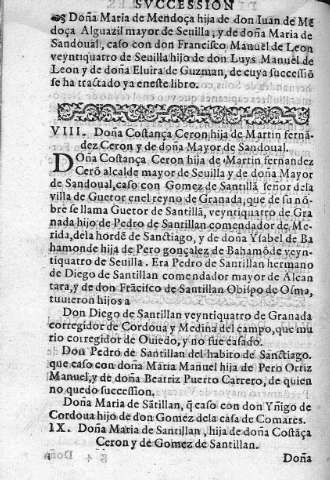 SVCCESSION
Doña Maria de Mendoça hija de don Iuan de Mẽ
doça Alguazil mayor de Seuilla, y de doña Maria de
Sandoual, caso con don Francisco Manuel de Leon
veyntiquatro de Seuilla hijo de don Luys Manuel de
Leon y de doña Eluira de Guzman, de cuya successiõ
se ha tractado ya en este libro.
VIII. Doña Costança Ceron hija de Martin fernã
dez Ceron y de doña Mayor de Sandoual.
Doña Costança Ceron hija de Martin fernandez
Cerõ alcalde mayor de Seuilla y de doña Mayor
de Sandoual, caso con Gomez de Santillã señor dela
villa de Guetor enel reyno de Granada, que de su nõ-
bre se llama Guetor de Santillã, veyntiquatro de Gra
nada hijo de Pedro de Santillan comendador de Me-
rida, dela hordẽ de Sanctiago, y de doña Ysabel de Ba
hamonde hija de Pero gonçalez de Bahamõde veyn-
tiquatro de Seuilla. Era Pedro de Santillan hermano
de Diego de Santillan comendador mayor de Alcan
tara, y de don Frãcisco de Santillan Obispo de Osma,
tuuieron hijos a
Don Diego de Santillan veyntiquatro de Granada
corregidor de Cordoua y Medina del campo, que mu
rio corregidor de Ouiedo, y no fue casado.
Don Pedro de Santillan del habito de Sanctiago.
que caso con doña Maria Manuel hija de Pero Ortiz
Manuel, y de doña Beatriz Puerto Carrero, de quien
no quedo succession.
Doña Maria de Sãtillan, q̃ caso con don Yñigo de
Cordoua hijo de don Gomez dela casa de Comares.
IX. Doña Maria de Santillan, hija de doña Costãça
Ceron y de Gomez de Santillan.
Doña